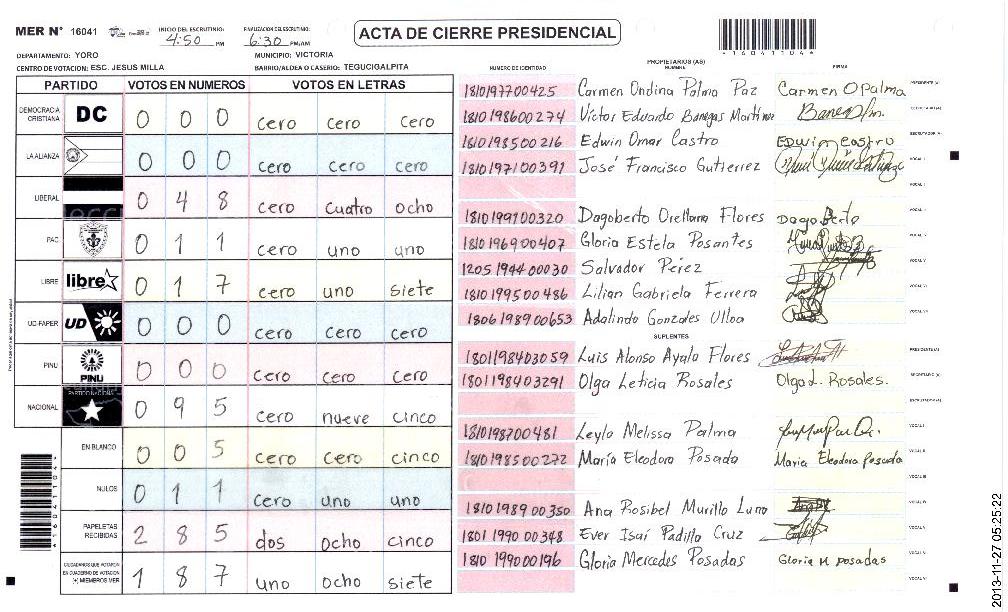 MER Nº 16041 INICIO DEL ESCRUTINIO: 4:50 PM FINALIZACION DEL ESCRUTINIO: 6:30 PM/AM
ACTA DE CIERRE PRESIDENCIAL
DEPARTAMENTO: YORO MUNICIPIO: VICTORIA
CENTRO DE VOTACION: ESC. JESUS MILLA BARRIO/ALDEA O CASERIO: TEGUCIGALPITA
PARTIDO VOTOS EN NUMEROS VOTOS EN LETRAS
DEMOCRACIA CRISTIANA DC 0 0 0 cero cero cero
LA ALIANZA 0 0 0 cero cero cero
LIBERAL 0 4 8 cero cuatro ocho
PAC 0 1 1 cero uno uno
LIBRE libre 0 1 7 cero uno siete
UD-FAPER UD 0 0 0 cero cero cero
PINU PINU 0 0 0 cero cero cero
NACIONAL PARTIDO NACIONAL 0 9 5 cero nueve cinco
EN BLANCO 0 0 5 cero cero cinco
NULOS 0 1 1 cero uno uno
PAPELETAS RECIBIDAS 2 8 5 dos ocho cinco
CIUDADANOS QUE VOTARON EN CUADERNO DE VOTACION (+) MIEMBROS MER 1 8 7 uno ocho siete
*160411044
PROPIETARIOS (AS)
NUMERO DE IDENTIDAD NOMBRE FIRMA
1810197700425 Carmen Ondina Palma Paz Carmen O Palma PRESIDENTE (A)
1810198600274 Víctor Eduardo Banegas Martínez SECRETARIO (A)
1610198500216 Edwin Omar Castro Edwin castro ESCRUTADOR (A)
1810197100391 José Francisco Gutierrez VOCAL I
VOCAL II
1810199100320 Dagoberto Orellana Flores Dagoberto
1810196900407 Gloria Estela Posantes
1205194400030 Salvador Pérez VOCAL V
1810199500486 Lilian Gabriela Ferrera VOCAL VI
1806198900653 Adalindo Gonzales Ulloa VOCAL VII
SUPLENTES
1801198403059 Luis Alonso Ayala Flores PRESIDENTE (A)
1801198403291 Olga Leticia Rosales Olga L. Rosales. SECRETARIO (A)
ESCRUTADOR (A)
1810198700481 Leyla Melissa Palma VOCAL I
1810198500272 María Eleodora Posada Maria Eleodora posada VOCAL II
VOCAL III
1810198900350 Ana Rosibel Murillo Luna VOCAL IV
1801199000348 Ever Isaí Padilla Cruz VOCAL V
1810199000196 Gloria Mercedes Posadas Gloria M posadas
2013-11-27 05:25:22